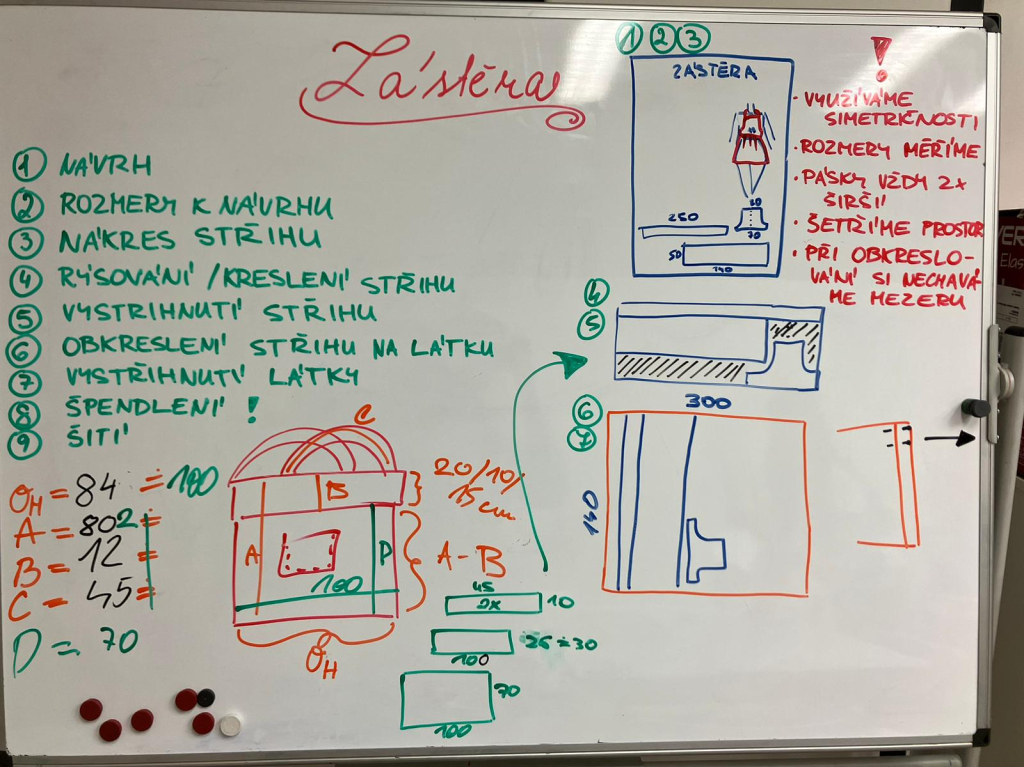 Zástěra
① NÁVRH
② ROZMERY K NÁVRHU
③ NÁKRES STŘIHU
④ RÝSOVÁNÍ / KRESLENÍ STŘIHU
⑤ VYSTRIHNUTÍ STŘIHU
⑥ OBKRESLENÍ STŘIHU NA LÁTKU
⑦ VYSTŘIHNUTÍ LÁTKY
⑧ ŠPENDLENÍ !
⑨ ŠITÍ
OH = 84 = 180
A = 802 =
B = 12 =
C = 45 =
D = 70
C
B
20/10/
15 cm
A
D
A-B
180
OH
45
2x
10
100
26 = 30
70
100
① ② ③
ZÁSTĚRA
250
70
50
140
④
⑤
300
⑥
⑦
140
!
• VYUŽÍVÁME
SIMETRIČNOSTI
• ROZMERY MĚŘÍME
• PÁSKY VŽDY 2x
ŠIRŠÍ
• ŠETŘÍME PROSTOR
• PŘI OBKRESLO-
VÁNÍ SI NECHAVÁ-
ME MEZERU